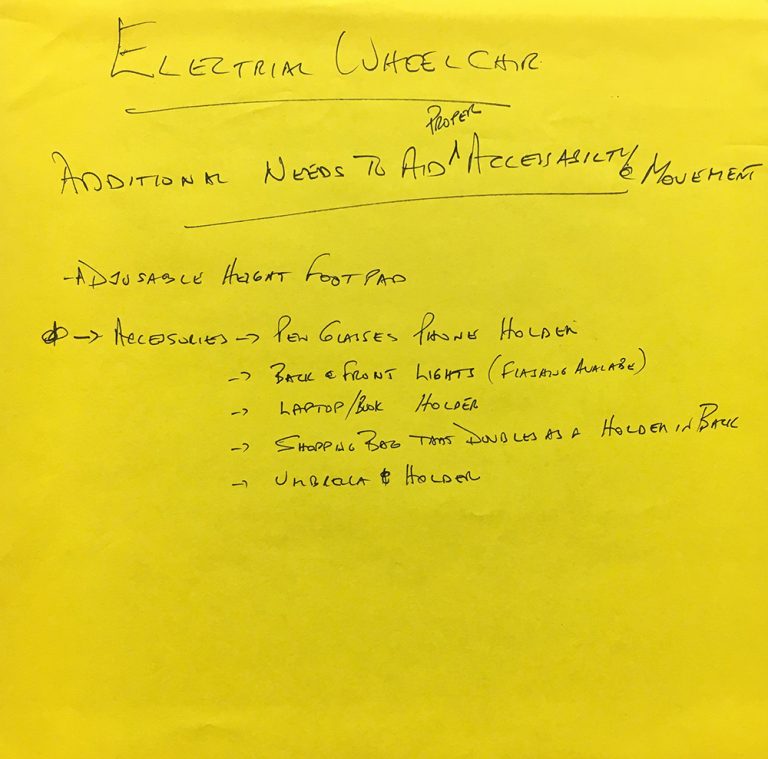 ELECTRIAL WHEELCHIR
PROPER
ADDITIONAL NEEDS TO AID ^ ACCESSABILTY & MOVEMENT
- ADJUSABLE HEIGHT FOOTPAD
→ ACCESSORIES → PEN GLASSES PHONE HOLDER
→ BACK & FRONT LIGHTS (FLASHING AVALABE)
→ LAPTOP/BOOK HOLDER
→ SHOPPING BAG THAT DOUBLES AS A HOLDER IN BACK
→ UMBRELA & HOLDER